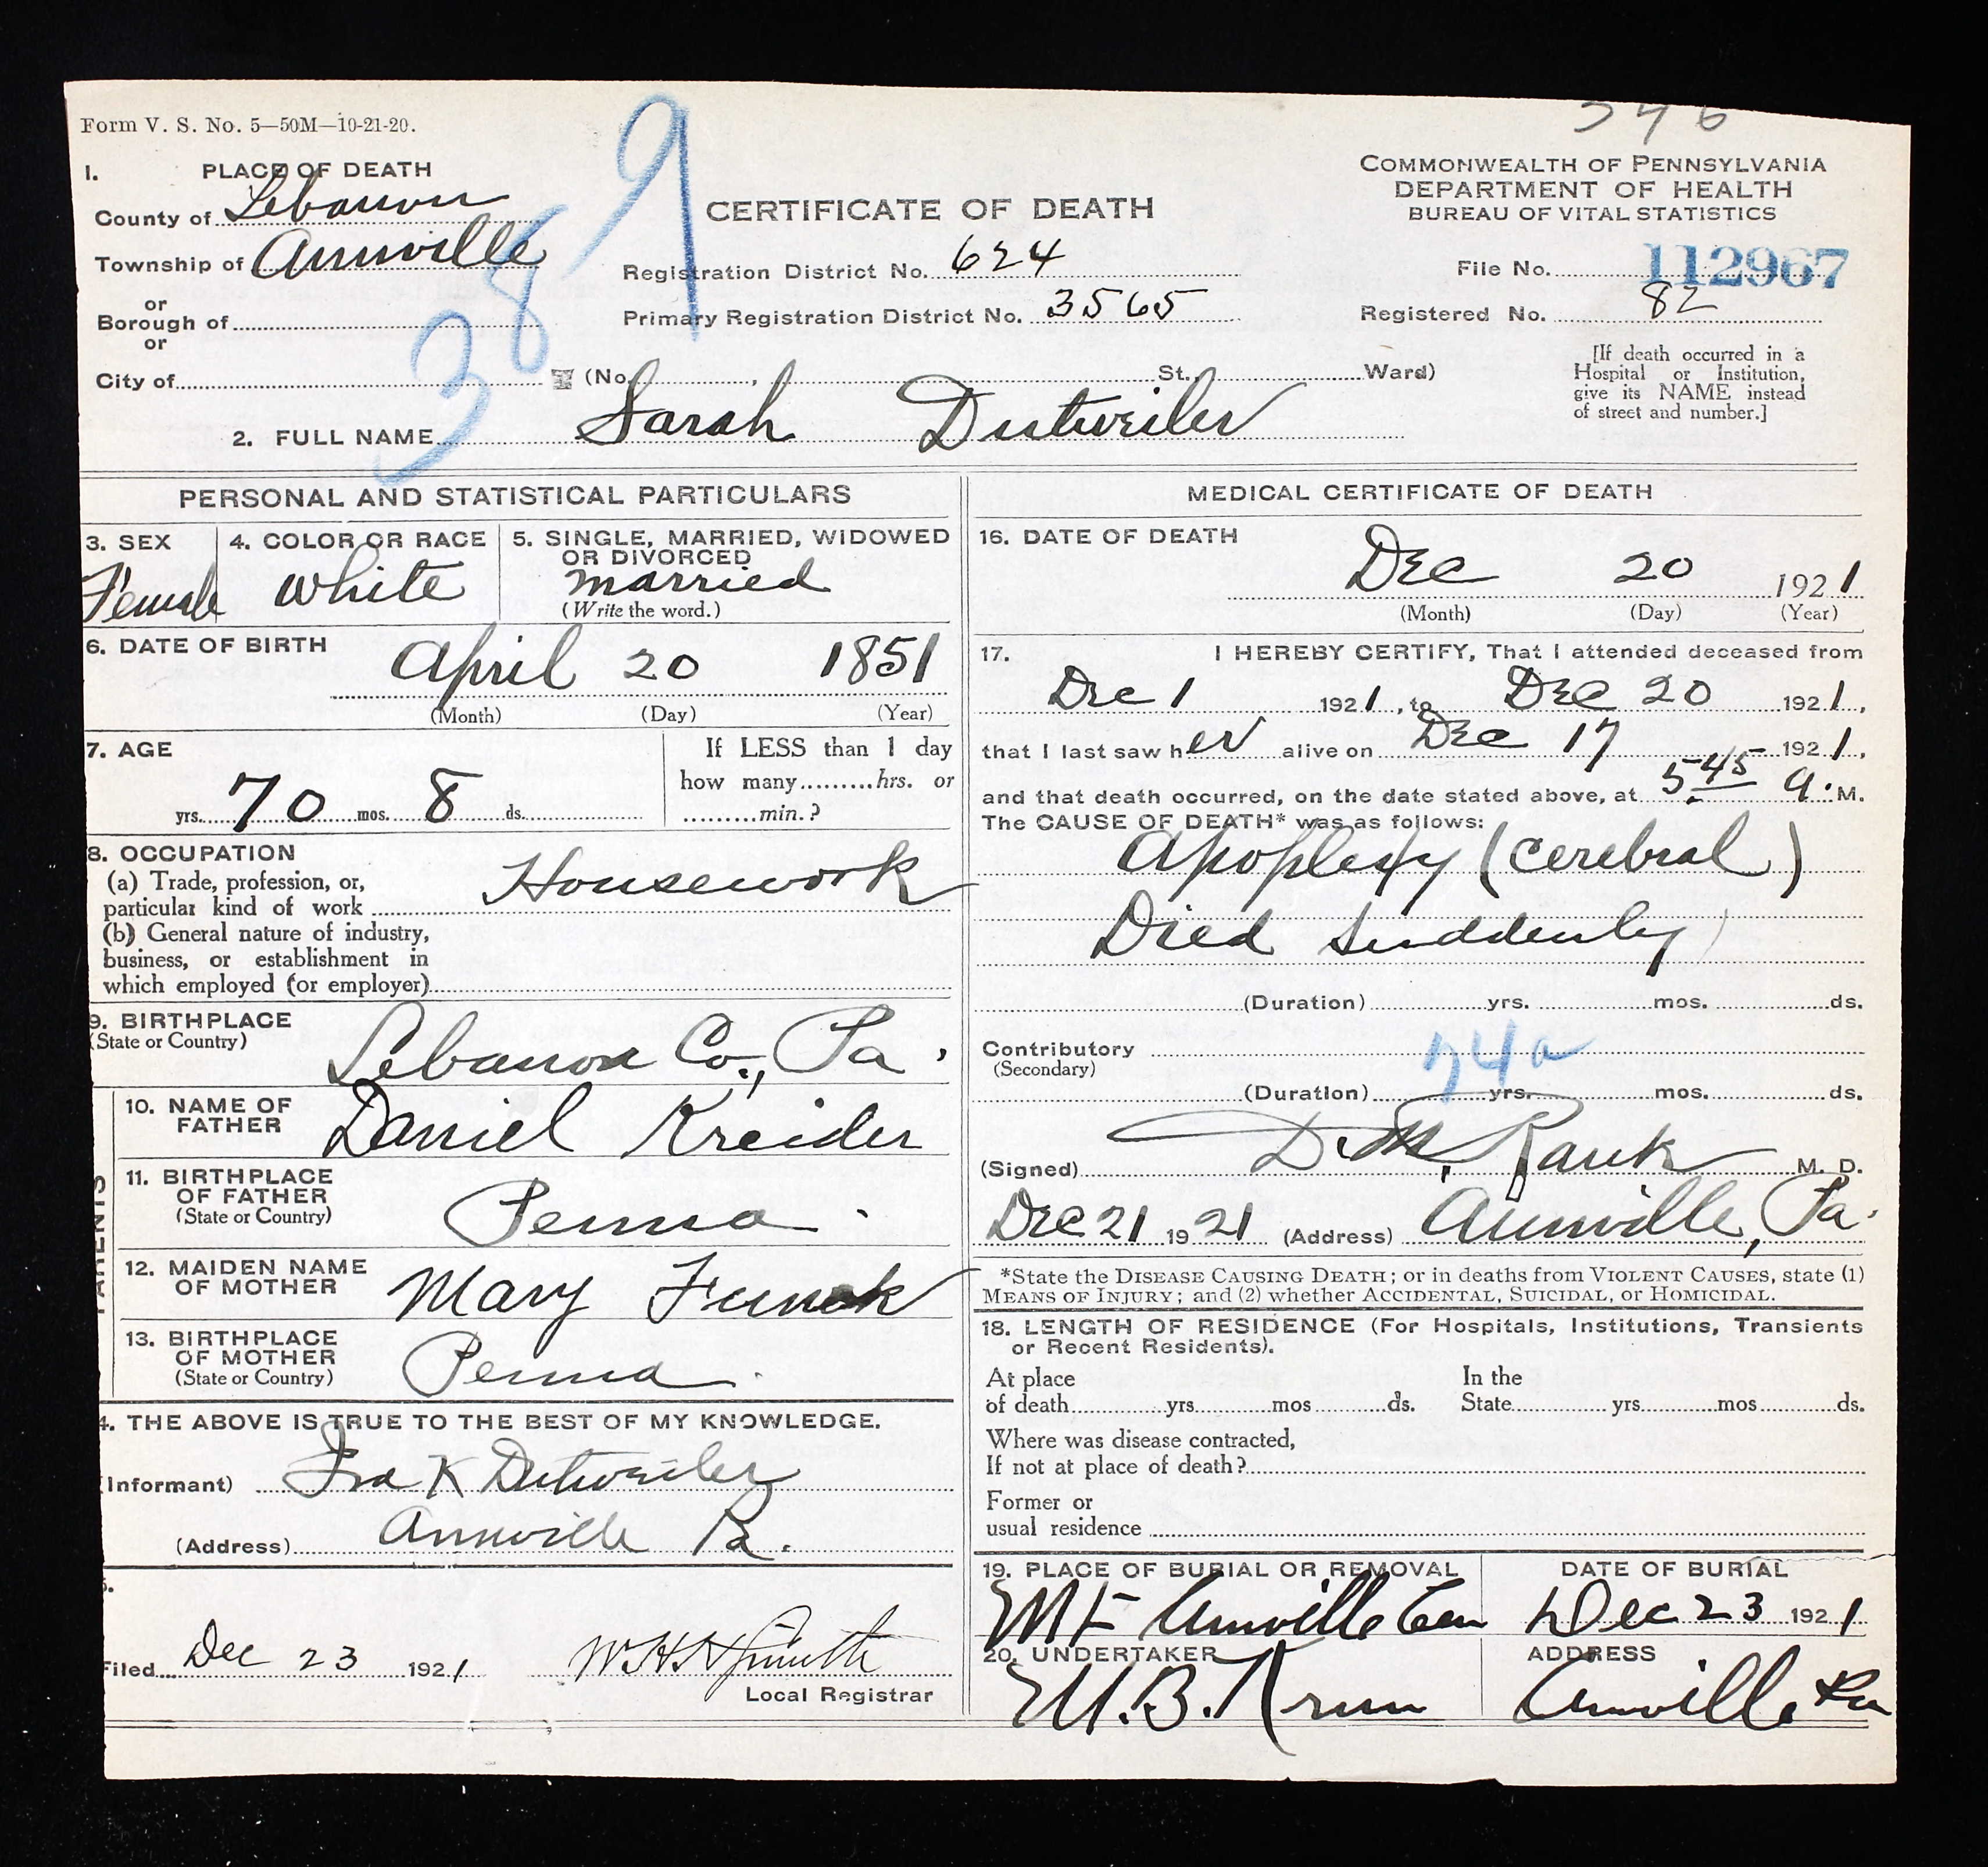 Form V. S. No. 5—50M—10-21-20.
389
1. PLACE OF DEATH
County of Lebanon
Township of Annville
or
Borough of
or
City of
CERTIFICATE OF DEATH
Registration District No. 624
Primary Registration District No. 3565
(No. , St., Ward)
COMMONWEALTH OF PENNSYLVANIA
DEPARTMENT OF HEALTH
BUREAU OF VITAL STATISTICS
File No. 112967
Registered No. 82
[If death occurred in a
Hospital or Institution,
give its NAME instead
of street and number.]
2. FULL NAME Sarah Dutweiler
PERSONAL AND STATISTICAL PARTICULARS
3. SEX
Female
4. COLOR OR RACE
White
5. SINGLE, MARRIED, WIDOWED
OR DIVORCED
married
(Write the word.)
6. DATE OF BIRTH
April 20 1851
(Month) (Day) (Year)
7. AGE
yrs. 70 mos. 8 ds.
If LESS than 1 day
how many hrs. or
min.?
8. OCCUPATION
(a) Trade, profession, or,
particular kind of work Housework
(b) General nature of industry,
business, or establishment in
which employed (or employer)
9. BIRTHPLACE
(State or Country)
Lebanon Co., Pa.
PARENTS
10. NAME OF
FATHER
Daniel Kreider
11. BIRTHPLACE
OF FATHER
(State or Country)
Penna.
12. MAIDEN NAME
OF MOTHER
Mary Funck
13. BIRTHPLACE
OF MOTHER
(State or Country)
Penna.
4. THE ABOVE IS TRUE TO THE BEST OF MY KNOWLEDGE.
(Informant) Ira K Dutweiler
(Address) Annville Pa.
Filed Dec 23 1921
Local Registrar
MEDICAL CERTIFICATE OF DEATH
16. DATE OF DEATH
Dec 20 1921
(Month) (Day) (Year)
17. I HEREBY CERTIFY, That I attended deceased from
Dec 1 1921, to Dec 20 1921,
that I last saw her alive on Dec 17 1921,
and that death occurred, on the date stated above, at 5:45 a. M.
The CAUSE OF DEATH* was as follows:
Apoplexy (cerebral)
Died suddenly
(Duration) yrs. mos. ds.
Contributory
(Secondary)
74a
(Duration) yrs. mos. ds.
(Signed) D. M. Rank M. D.
Dec 21 1921 (Address) Annville, Pa.
*State the DISEASE CAUSING DEATH; or in deaths from VIOLENT CAUSES, state (1)
MEANS OF INJURY; and (2) whether ACCIDENTAL, SUICIDAL, or HOMICIDAL.
18. LENGTH OF RESIDENCE (For Hospitals, Institutions, Transients
or Recent Residents).
At place
of death yrs mos ds.
In the
State yrs mos ds.
Where was disease contracted,
If not at place of death?
Former or
usual residence
19. PLACE OF BURIAL OR REMOVAL
Mt Annville Cem
DATE OF BURIAL
Dec 23 1921
20. UNDERTAKER
M. B. Krum
ADDRESS
Annville Pa